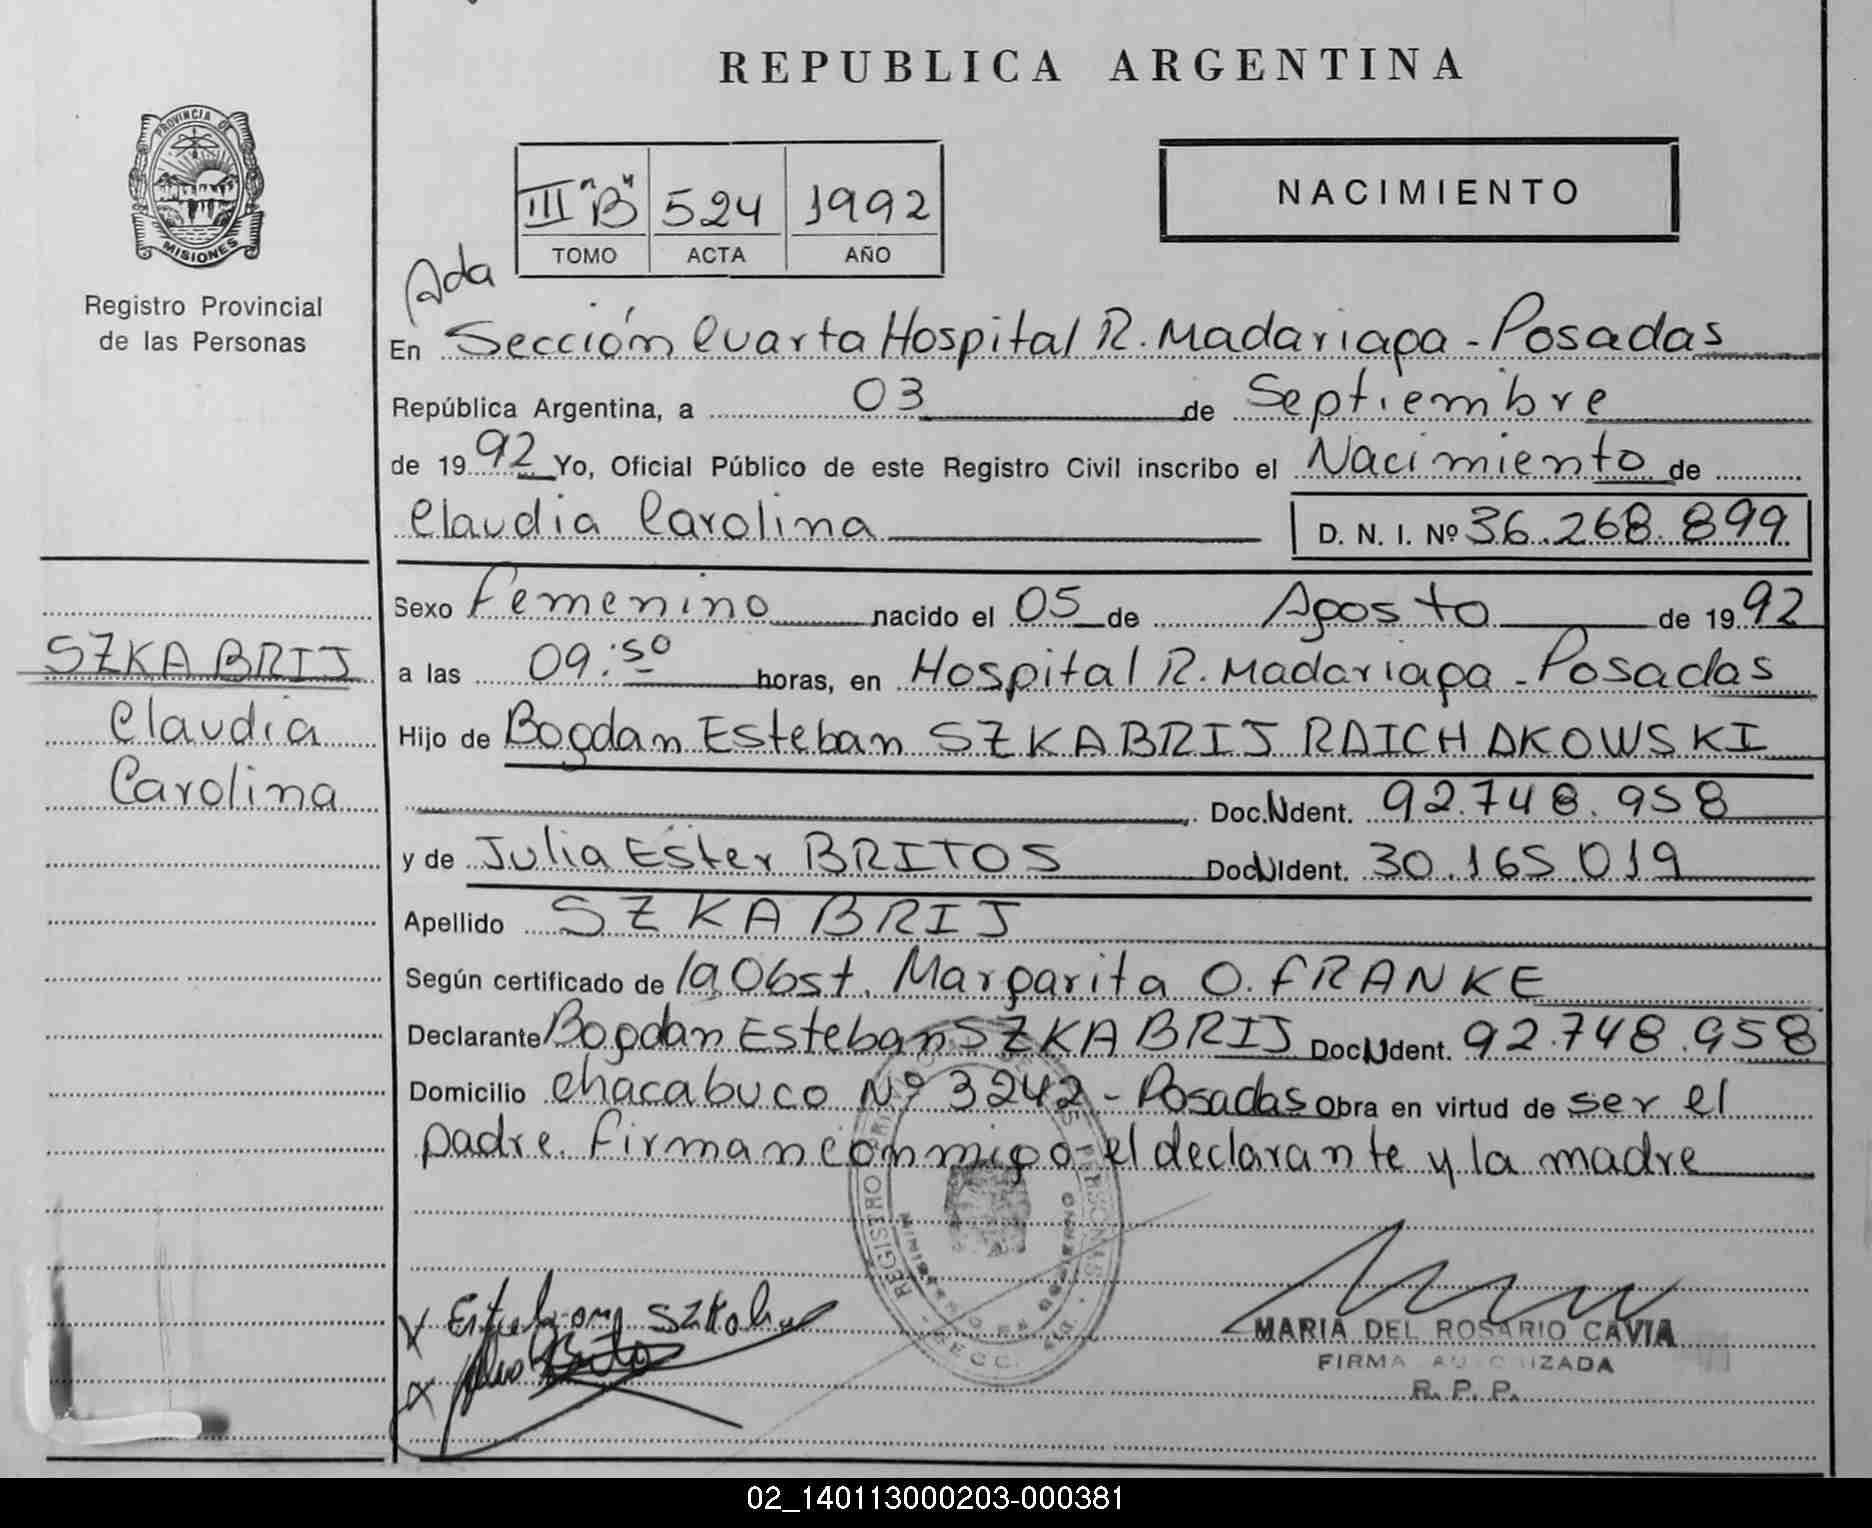 REPUBLICA ARGENTINA
PROVINCIA DE
MISIONES
Registro Provincial
de las Personas
III "B" 524 1992
TOMO ACTA AÑO
NACIMIENTO
Ada
En Sección Cuarta Hospital R. Madariaga - Posadas
República Argentina, a 03 de Septiembre
de 1992 Yo, Oficial Público de este Registro Civil inscribo el Nacimiento de
Claudia Carolina D. N. I. Nº 36.268.899
Sexo Femenino nacido el 05 de Agosto de 1992
SZKABRIJ
Claudia
Carolina
a las 09:50 horas, en Hospital R. Madariaga - Posadas
Hijo de Bogdan Esteban SZKABRIJ RAICHAKOWSKI
Doc. Ident. 92.748.958
y de Julia Ester BRITOS Doc. Ident. 30.165.019
Apellido SZKABRIJ
Según certificado de la Obst. Margarita O. FRANKE
Declarante Bogdan Esteban SZKABRIJ Doc. Ident. 92.748.958
Domicilio Chacabuco Nº 3242 - Posadas Obra en virtud de ser el
padre. Firman conmigo el declarante y la madre
REGISTRO
PERSONAS
MARIA DEL ROSARIO CAVIA
FIRMA AUTORIZADA
R. P. P.
02_140113000203-000381